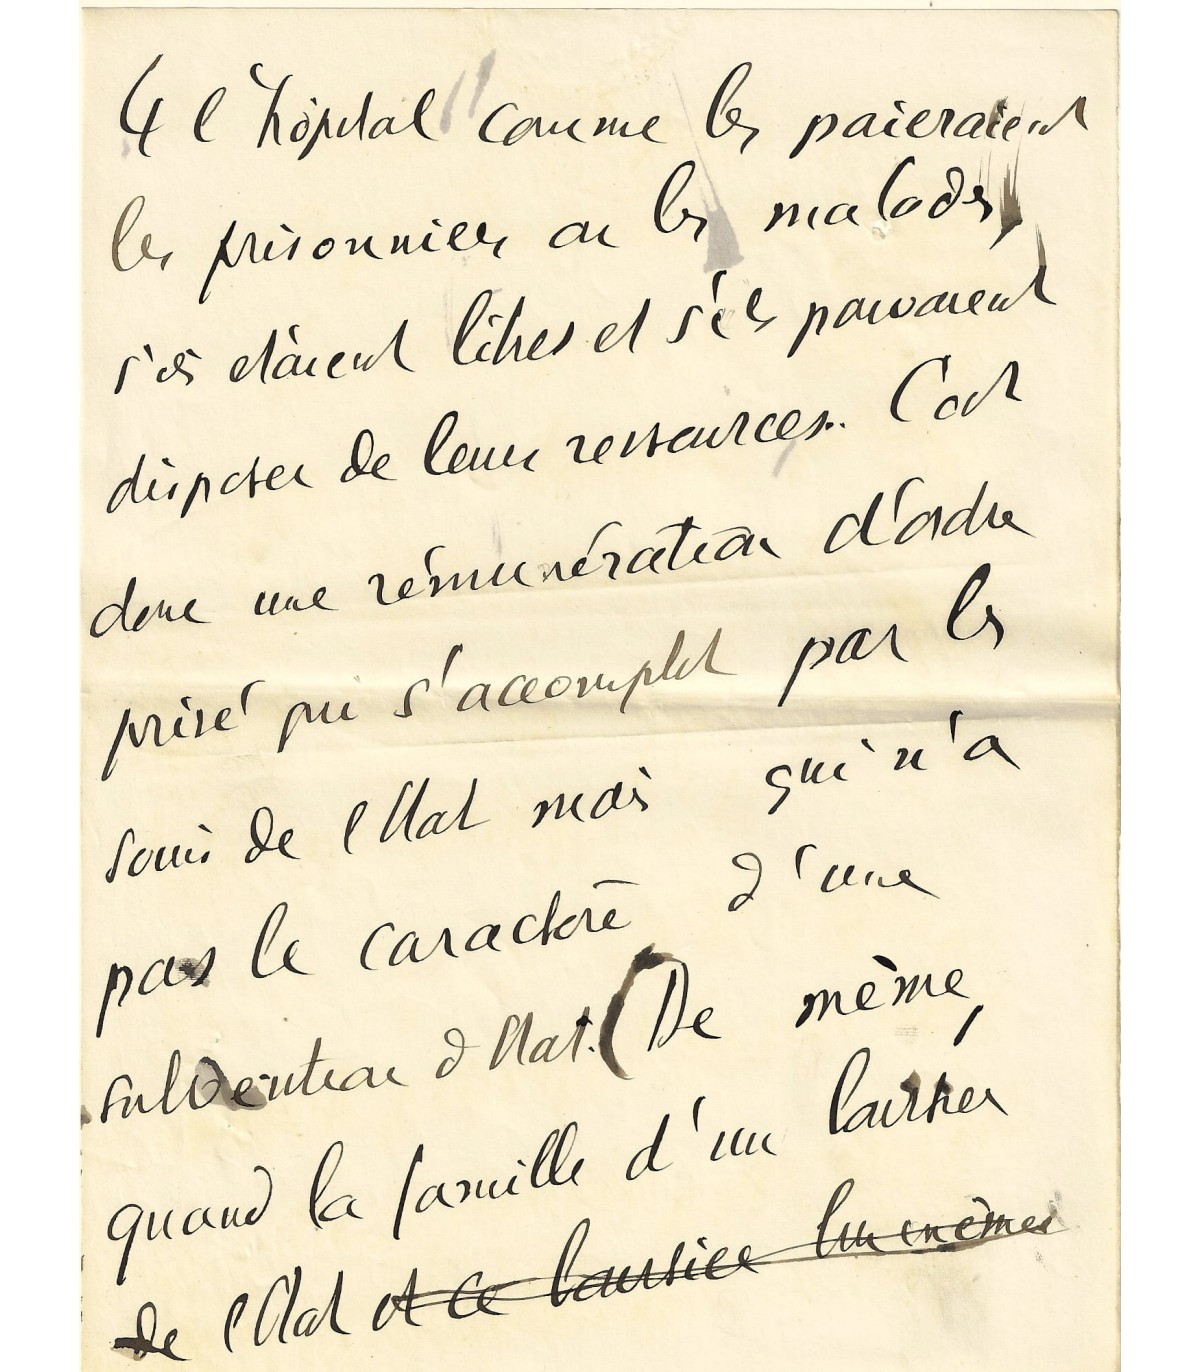 4 l'hôpital comme les paieraient
les prisonniers ou les malades,
s'ils étaient libres et s'ils pouvaient
disposer de leurs ressources. C'est
donc une rémunération d'ordre
privé qui s'accomplit par les
soins de l'Etat mais qui n'a
pas le caractère d'une
subvention d'Etat. (De même,
quand la famille d'un boursier
de l'Etat et ce boursier lui même